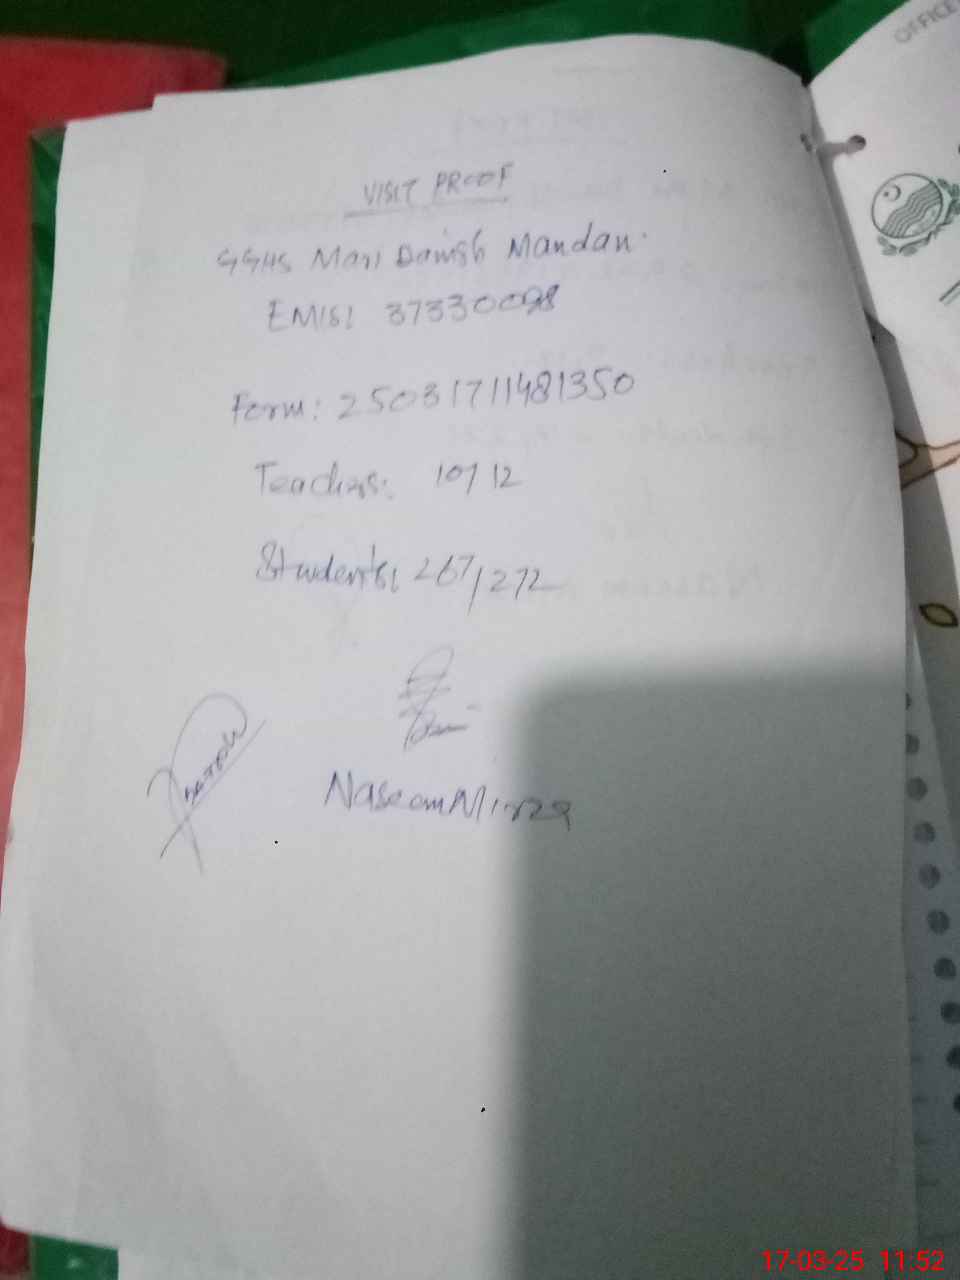 OFFICE
VISIT PROOF
GGHS Mari Danish Mandan.
EMIS: 37330098
Form: 25031711481350
Teachers: 10/12
Students: 267/272
Naseem Mirza
17-03-25 11:52